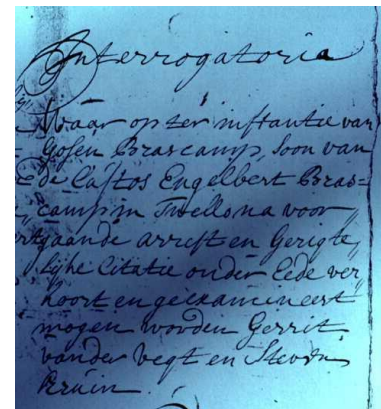 Interrogatoria
Waar op ter instantie van
Gosen Brascamp, Soon van
de Custos Engelbert Bras=
camp in Twello na voor
gaande arrest en Gerigte,,
lijke Citatie onder Eede ver,,
hoort en geexamineert
mogen worden Gerrit
vander Vegt en Steven
Kruin.